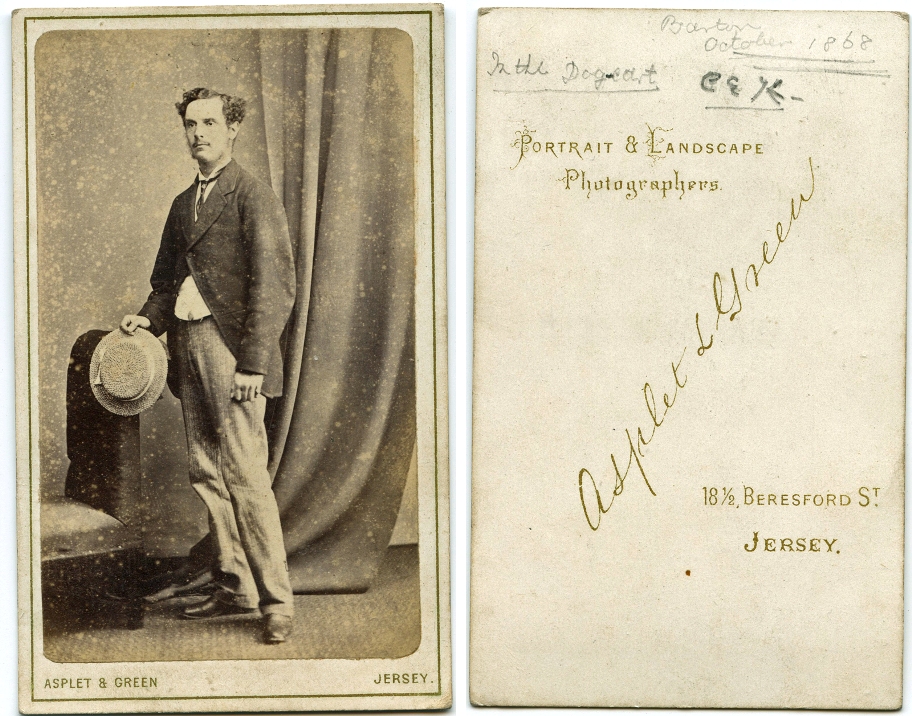 ASPLET & GREEN
JERSEY.
Barton
October 1868
In the Dogcart
PORTRAIT & LANDSCAPE
Photographers.
Asplet & Green
18½, BERESFORD ST
JERSEY.